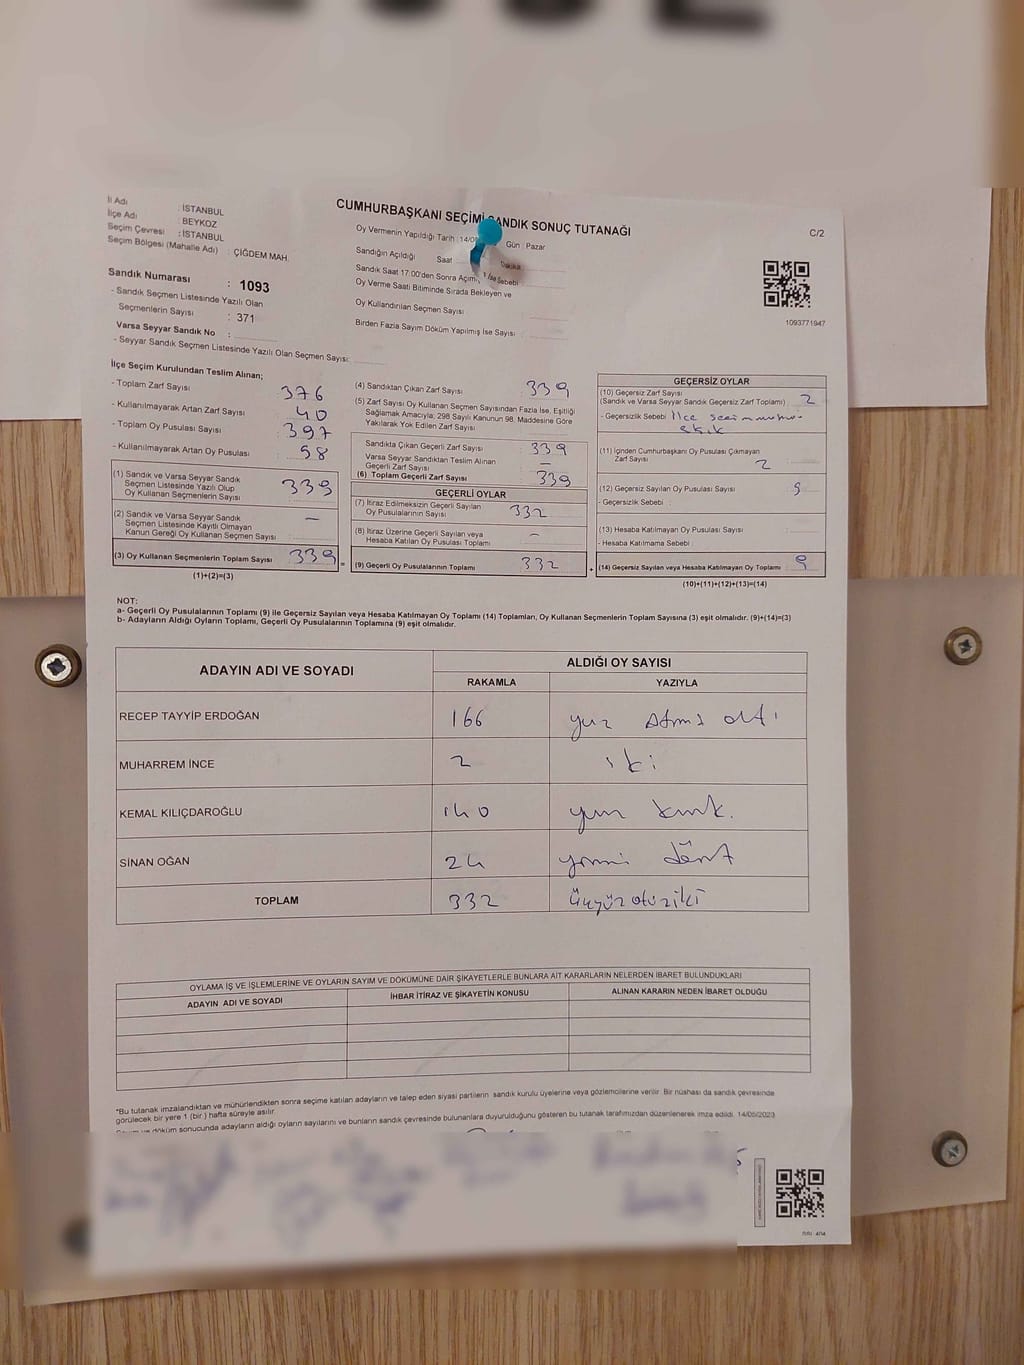 İl Adı : İSTANBUL
İlçe Adı : BEYKOZ
Seçim Çevresi : İSTANBUL
Seçim Bölgesi (Mahalle Adı) : ÇİĞDEM MAH.
CUMHURBAŞKANI SEÇİMİ SANDIK SONUÇ TUTANAĞI
C/2
Oy Vermenin Yapıldığı Tarih : 14/05 Gün : Pazar
Sandığın Açıldığı Saat Dakika
Sandık Saat 17:00'den Sonra Açılmış ise Sebebi
Oy Verme Saati Bitiminde Sırada Bekleyen ve
Oy Kullandırılan Seçmen Sayısı :
Birden Fazla Sayım Döküm Yapılmış İse Sayısı :
1093771947
Sandık Numarası : 1093
- Sandık Seçmen Listesinde Yazılı Olan
Seçmenlerin Sayısı : 371
Varsa Seyyar Sandık No :
- Seyyar Sandık Seçmen Listesinde Yazılı Olan Seçmen Sayısı:
İlçe Seçim Kurulundan Teslim Alınan;
- Toplam Zarf Sayısı 376
- Kullanılmayarak Artan Zarf Sayısı : 40
- Toplam Oy Pusulası Sayısı : 397
- Kullanılmayarak Artan Oy Pusulası : 58
(1) Sandık ve Varsa Seyyar Sandık
Seçmen Listesinde Yazılı Olup
Oy Kullanan Seçmenlerin Sayısı : 339
(2) Sandık ve Varsa Seyyar Sandık
Seçmen Listesinde Kayıtlı Olmayan
Kanun Gereği Oy Kullanan Seçmen Sayısı : —
(3) Oy Kullanan Seçmenlerin Toplam Sayısı : 339
(1)+(2)=(3)
=
(4) Sandıktan Çıkan Zarf Sayısı : 339
(5) Zarf Sayısı Oy Kullanan Seçmen Sayısından Fazla İse, Eşitliği
Sağlamak Amacıyla; 298 Sayılı Kanunun 98. Maddesine Göre
Yakılarak Yok Edilen Zarf Sayısı :
Sandıkta Çıkan Geçerli Zarf Sayısı : 339
Varsa Seyyar Sandıktan Teslim Alınan
Geçerli Zarf Sayısı : —
(6) Toplam Geçerli Zarf Sayısı : 339
GEÇERLİ OYLAR
(7) İtiraz Edilmeksizin Geçerli Sayılan
Oy Pusulalarının Sayısı : 332
(8) İtiraz Üzerine Geçerli Sayılan veya
Hesaba Katılan Oy Pusulası Toplamı : -
(9) Geçerli Oy Pusulalarının Toplamı : 332
+
GEÇERSİZ OYLAR
(10) Geçersiz Zarf Sayısı
(Sandık ve Varsa Seyyar Sandık Geçersiz Zarf Toplamı) : 2
- Geçersizlik Sebebi : İlçe seçim mührü
eksik
(11) İçinden Cumhurbaşkanı Oy Pusulası Çıkmayan
Zarf Sayısı : 2
(12) Geçersiz Sayılan Oy Pusulası Sayısı : 5
- Geçersizlik Sebebi :
(13) Hesaba Katılmayan Oy Pusulası Sayısı :
- Hesaba Katılmama Sebebi :
(14) Geçersiz Sayılan veya Hesaba Katılmayan Oy Toplamı : 9
(10)+(11)+(12)+(13)=(14)
NOT:
a- Geçerli Oy Pusulalarının Toplamı (9) ile Geçersiz Sayılan veya Hesaba Katılmayan Oy Toplamı (14) Toplamları, Oy Kullanan Seçmenlerin Toplam Sayısına (3) eşit olmalıdır. (9)+(14)=(3)
b- Adayların Aldığı Oyların Toplamı, Geçerli Oy Pusulalarının Toplamına (9) eşit olmalıdır.
ADAYIN ADI VE SOYADI
ALDIĞI OY SAYISI
RAKAMLA YAZIYLA
RECEP TAYYİP ERDOĞAN 166 yüz atmış altı
MUHARREM İNCE 2 iki
KEMAL KILIÇDAROĞLU 140 yüz kırk.
SİNAN OĞAN 24 yirmi dört
TOPLAM 332 üçyüz otuziki
OYLAMA İŞ VE İŞLEMLERİNE VE OYLARIN SAYIM VE DÖKÜMÜNE DAİR ŞİKAYETLERLE BUNLARA AİT KARARLARIN NELERDEN İBARET BULUNDUKLARI
ADAYIN ADI VE SOYADI İHBAR İTİRAZ VE ŞİKAYETİN KONUSU ALINAN KARARIN NEDEN İBARET OLDUĞU
*Bu tutanak imzalandıktan ve mühürlendikten sonra seçime katılan adayların ve talep eden siyasi partilerin sandık kurulu üyelerine veya gözlemcilerine verilir. Bir nüshası da sandık çevresinde
görülecek bir yere 1 (bir ) hafta süreyle asılır.
Sayım ve döküm sonucunda adayların aldığı oyların sayılarını ve bunların sandık çevresinde bulunanlara duyurulduğunu gösteren bu tutanak tarafımızdan düzenlenerek imza edildi. 14/05/2023